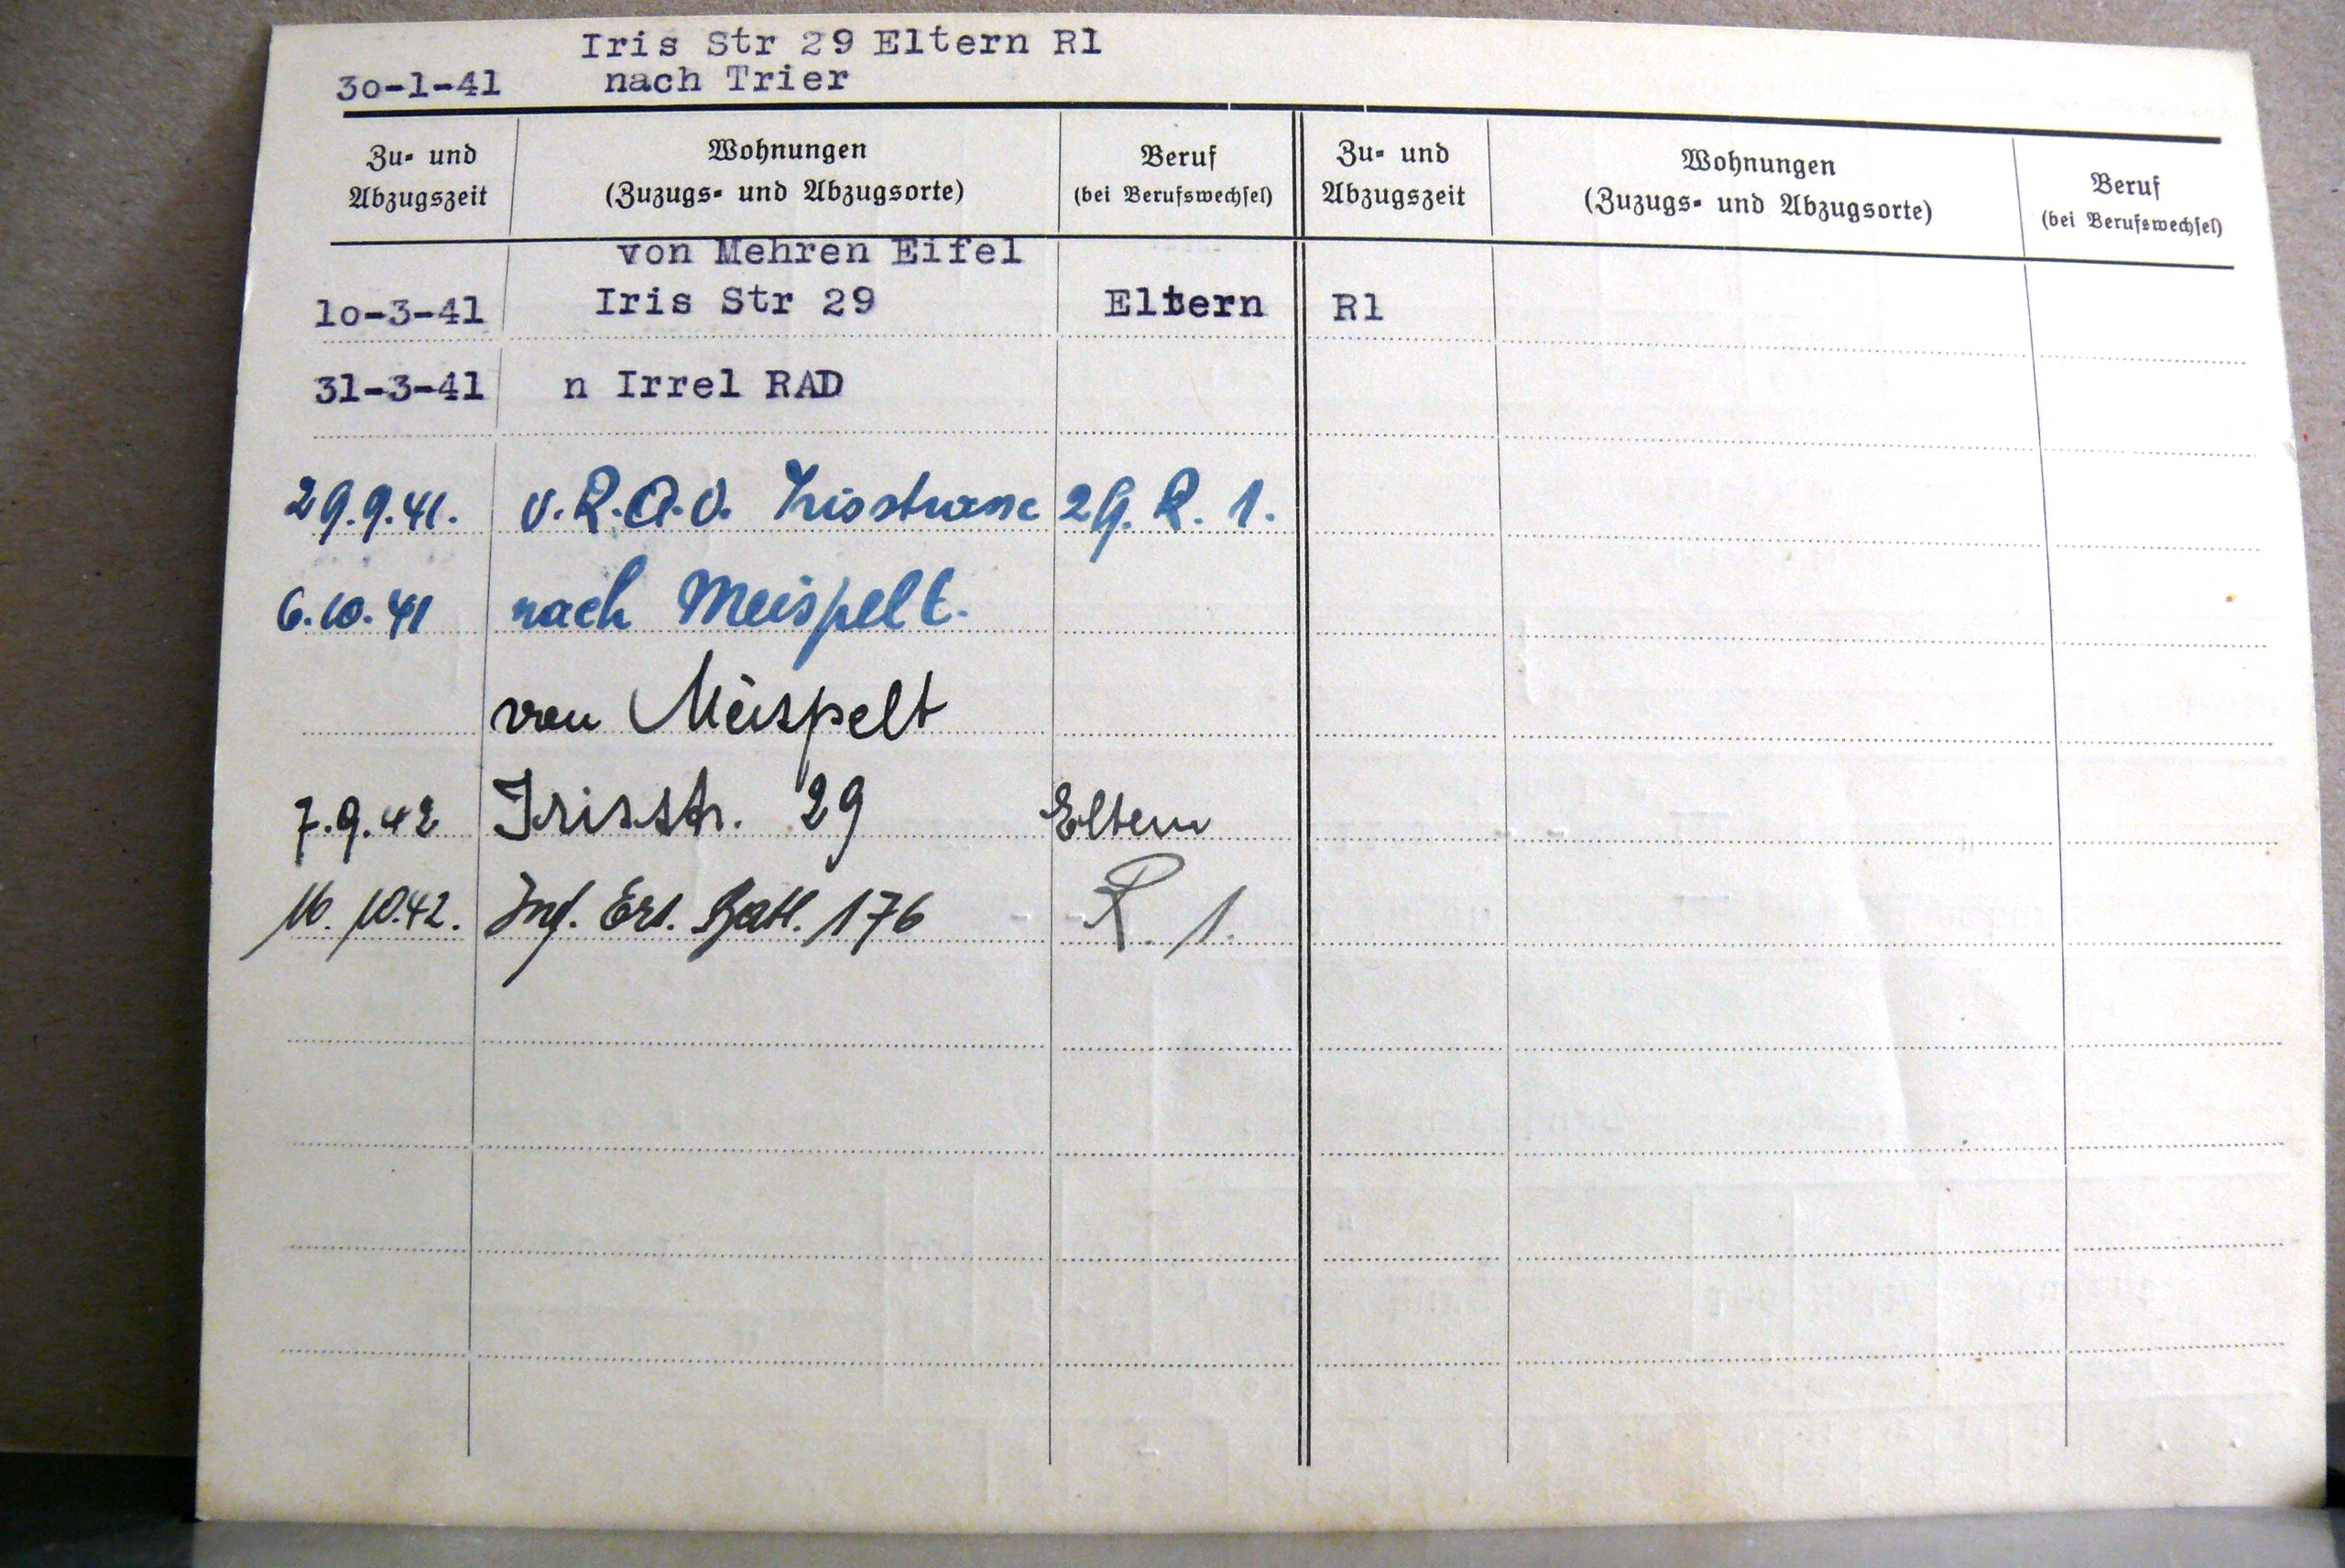 Iris Str 29 Eltern Rl
30-1-41 nach Trier
Zu- und Abzugszeit Wohnungen (Zuzugs- und Abzugsorte) Beruf (bei Berufswechsel) Zu- und Abzugszeit Wohnungen (Zuzugs- und Abzugsorte) Beruf (bei Berufswechsel)
von Mehren Eifel
10-3-41 Iris Str 29 Eltern Rl
31-3-41 n Irrel RAD
29.9.41. v.R.A.D. Irisstrasse 29. R. 1.
6.10.41 nach Meispelt.
von Meispelt
7.9.42 Irisstr. 29 Eltern
16.10.42. Inf. Ers. Batl. 176 R. 1.